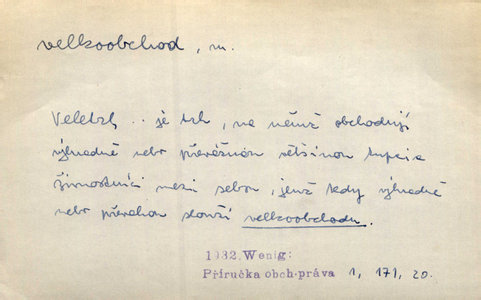 velkoobchod, m.
Veletrh .. je trh, na němž obchodují
výhradně nebo převážnou většinou kupci a
živnostníci mezi sebou, jenž tedy výhradně
nebo převahou slouží velkoobchodu.
1932. Wenig:
Příručka obch-práva 1, 171, 20.